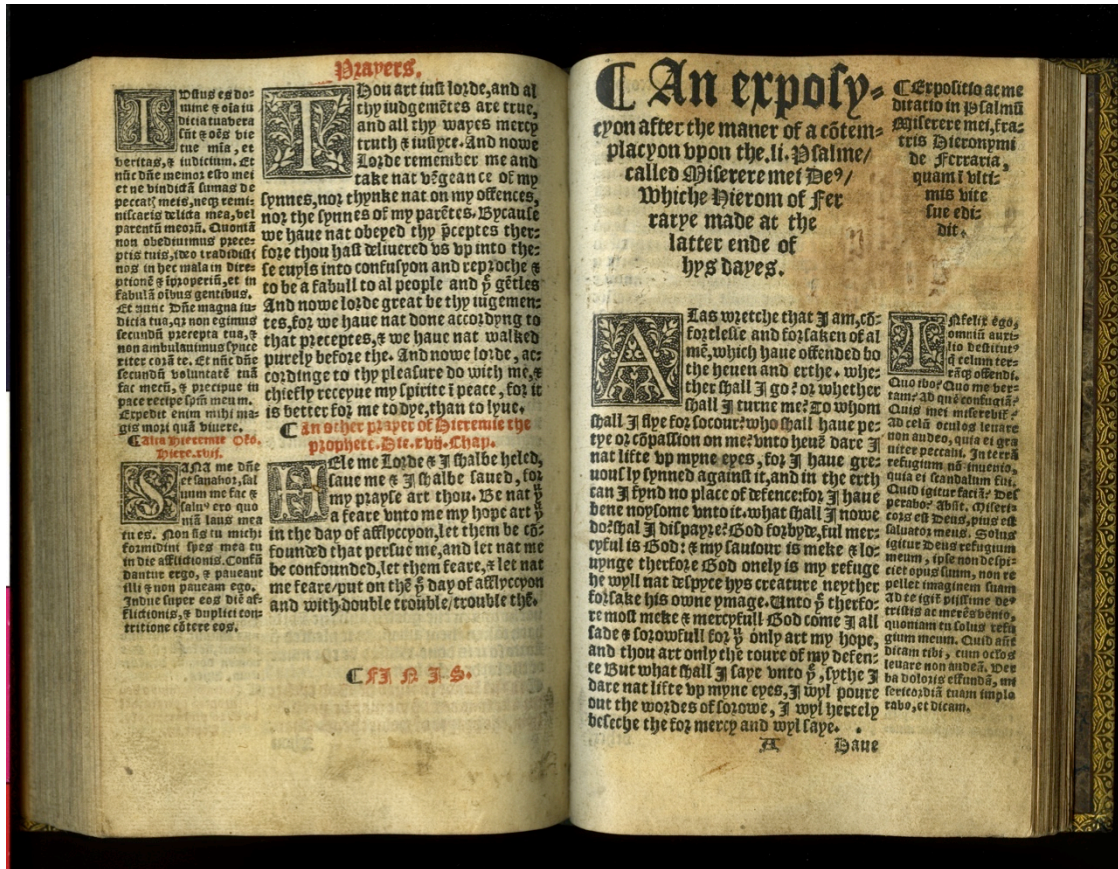 Prayers.
IVstus es do-
mine & oīa iu
dicia tua vera
sūt & oēs vie
tue mīa, et
veritas, & iudicium. Et
nūc dñe memor esto mei
et ne vindictā sumas de
peccatꝭ meis, neqꝫ remi-
niscaris delicta mea, vel
parentū meorū. Quoniā
non obediuimus prece-
ptis tuis, ideo tradidisti
nos in hec mala in dire-
ptionē & īproperiū, et in
fabulā oībus gentibus.
Et nunc Dñe magna iu-
dicia tua, qꝛ non egimus
secundū precepta tua, &
non ambulauimus synce
riter corā te. Et nūc dñe
secundū voluntatē tuā
fac mecū, & precipue in
pace recipe spm̄ meum.
Expedit enim mihi ma-
gis mori quā viuere.
Alia Hieremie Oro.
Hiere.xvij.
SANa me dñe
et sanabor, sal
uum me fac &
saluꝰ ero quo
niā laus mea
tu es. Non sis tu michi
formidini spes mea tu
in die afflictionis. Confū
dantur ergo, & paueant
illi & non paueam ego.
Indue super eos diē af-
flictionis, & duplici con-
tritione cōtere eos.
THou art iust lorde, and al
thy iudgemētes are true,
and all thy wayes mercy
truth & iustyce. And nowe
Lorde remember me and
take nat vēgeance of my
synnes, nor thynke nat on my offences,
nor the synnes of my parētes. Bycause
we haue nat obeyed thy p̄ceptes ther-
fore thou hast deliuered vs vp into the-
se euyls into confusyon and reproche &
to be a fabull to al people and yͤ gētles
And nowe lorde great be thy iugemen-
tes, for we haue nat done accordyng to
that preceptes, & we haue nat walked
purely before the. And nowe lorde, ac-
cordinge to thy pleasure do with me, &
chiefly receyue my spirite ī peace, for it
is better for me to dye, than to lyue.
¶ An other prayer of Hieremie the
prophete. Die.xvij.Chap.
HEle me Lorde & I shalbe heled,
saue me & I shalbe saued, for
my prayse art thou. Be nat yͧ
a feare vnto me my hope art yͧ
in the day of afflyccyon, let them be cō-
founded that persue me, and let nat me
be confounded, let them feare, & let nat
me feare/put on thē yͤ day of afflyccyon
and with double trouble/trouble thē.
¶ FI N I S.
¶ An exposy-
cyon after the maner of a cōtem-
placyon vpon the.li. Psalme/
called Miserere mei Deꝰ/
Whiche Hierom of Fer
rarye made at the
latter ende of
hys dayes.
¶ Expositio ac me
ditatio in Psalmū
Miserere mei, fra-
tris Hieronymi
de Ferraria,
quam ī vlti-
mis vite
sue edi-
dit.
ALas wretche that I am, cō-
fortlesse and forsaken of al
mē, which haue offended bo
the heuen and erthe. whe-
ther shall I go? or whether
shall I turne me? To whom
shall I flye for socour? who shall haue pe-
tye or cōpassion on me? vnto heuē dare I
nat lifte vp myne eyes, for I haue gre-
uously synned against it, and in the erth
can I fynd no place of defence: for I haue
bene noysome vnto it. what shall I nowe
do? shal I dispayre? God forbyde, ful mer-
cyful is God: & my sauiour is meke & lo-
uynge therfore God onely is my refuge
he wyll nat despyce hys creature neyther
forsake his owne ymage. Unto yͤ therfo-
re most meke & mercyfull God come I all
sade & sorowfull for yͧ only art my hope,
and thou art only the toure of my defen-
te But what shall I saye vnto yͤ, sythe I
dare nat lifte vp myne eyes, I wyl poure
out the wordes of sorowe, I wyl hertely
beseche the for mercy and wyl saye.
A Haue
INfelix ego,
omniū auxi-
lio destitutꝰ
q̄ celum ter-
rāqꝫ offendi.
Quo ibo? Quo me ver-
tam? Ad quē confugiā?
Quis mei miserebit̄?
Ad celū oculos leuare
non audeo, quia ei gra
uiter peccaui. In terrā
refugium nō inuenio,
quia ei scandalum fui.
Quid igitur faciā? Des
perabo? Absit. Miseri-
cors est Deus, pius est
saluator meus. Solus
igitur Deus refugium
meum, ipse non despi-
ciet opus suum, non re
pellet imaginem suam
Ad te igit̄ piissime deꝰ
tristis ac merēs venio,
quoniam tu solus refu
gium meum. Quid aūt
dicam tibi, cum oclos
leuare non audeā. Ver
ba doloris effundā, mi
sericordiā tuam implo
rabo, et dicam.